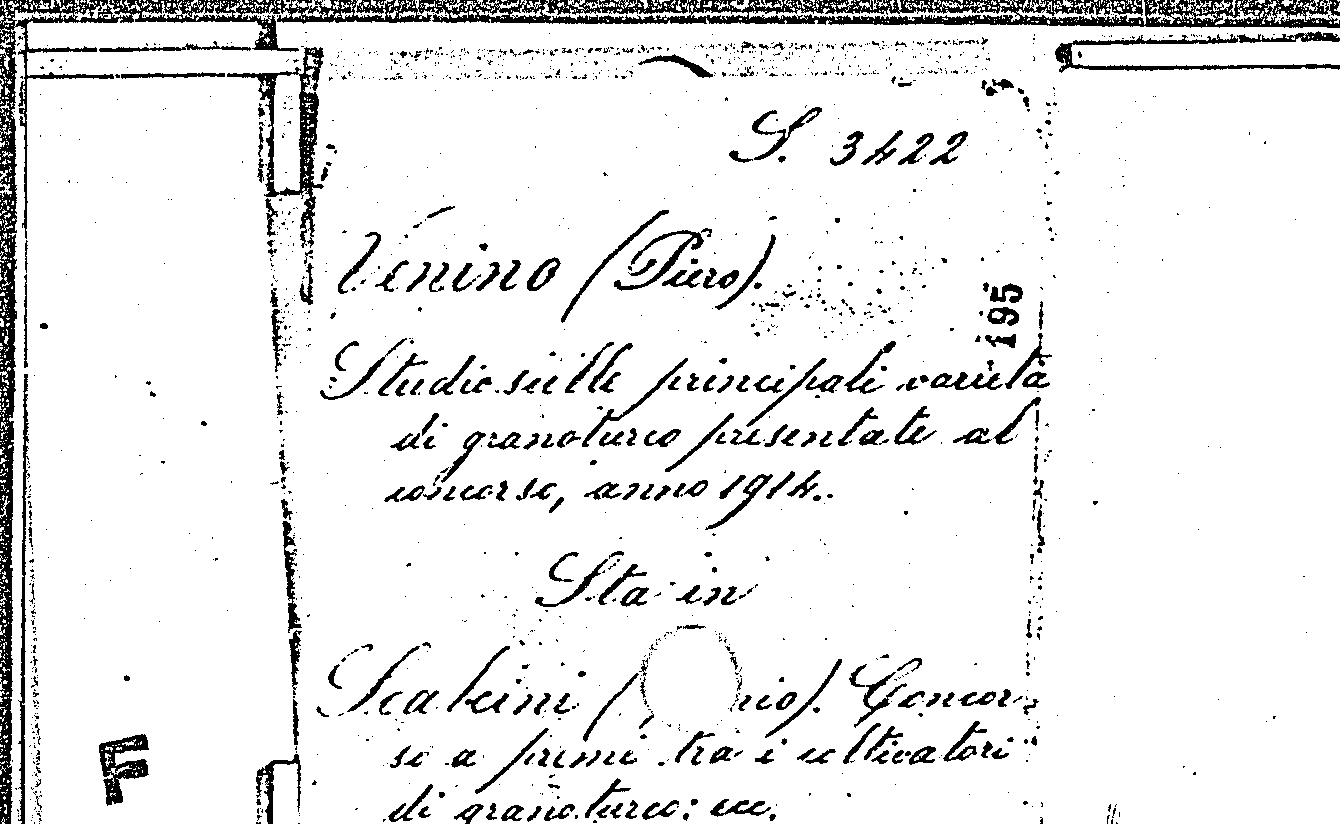 S. 3422
Venino (Piero).
195
Studio sulle principali varietà
di granoturco presentate al
concorso, anno 1914..
Sta in
Scalcini ( nio). Concor-
so a premi tra i coltivatori
di granoturco: ecc.
F